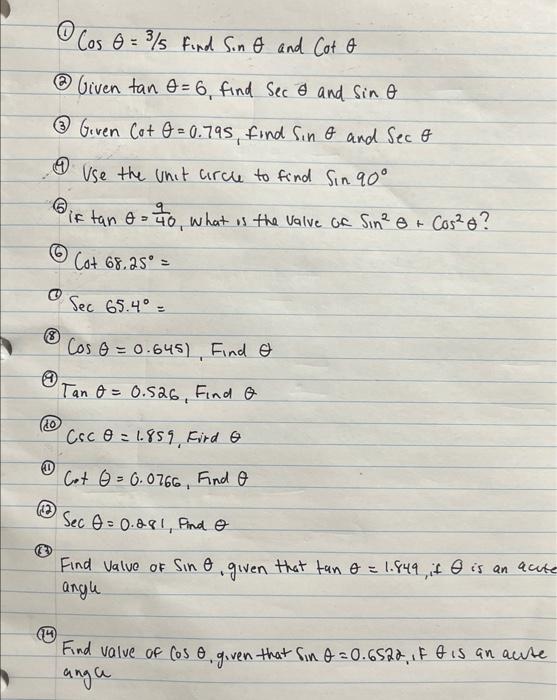 ① Cos θ = 3/5 Find Sin θ and Cot θ
② Given tan θ = 6, find Sec θ and Sin θ
③ Given Cot θ = 0.795, find Sin θ and Sec θ
④ Use the unit circle to find Sin 90°
⑤ if tan θ = 9/40, what is the value of Sin² θ + Cos² θ?
⑥ Cot 68.25° =
⑦ Sec 65.4° =
⑧ Cos θ = 0.6451, Find θ
⑨ Tan θ = 0.526, Find θ
⑩ Csc θ = 1.859, Find θ
⑪ Cot θ = 0.0766, Find θ
⑫ Sec θ = 0.281, Find θ
⑬ Find value of Sin θ, given that tan θ = 1.849, if θ is an acute
angle
⑭ Find value of Cos θ, given that Sin θ = 0.6522, if θ is an acute
angle